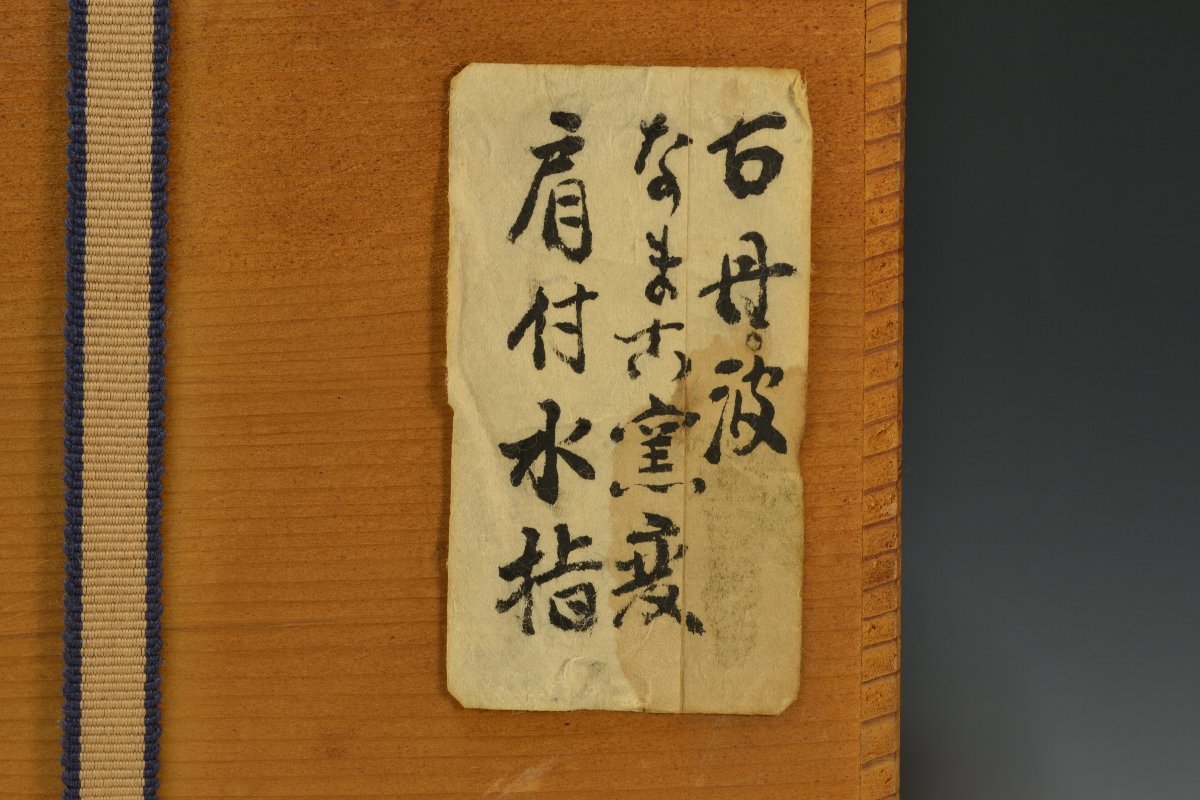 古丹波
なまこ窯変
肩付水指